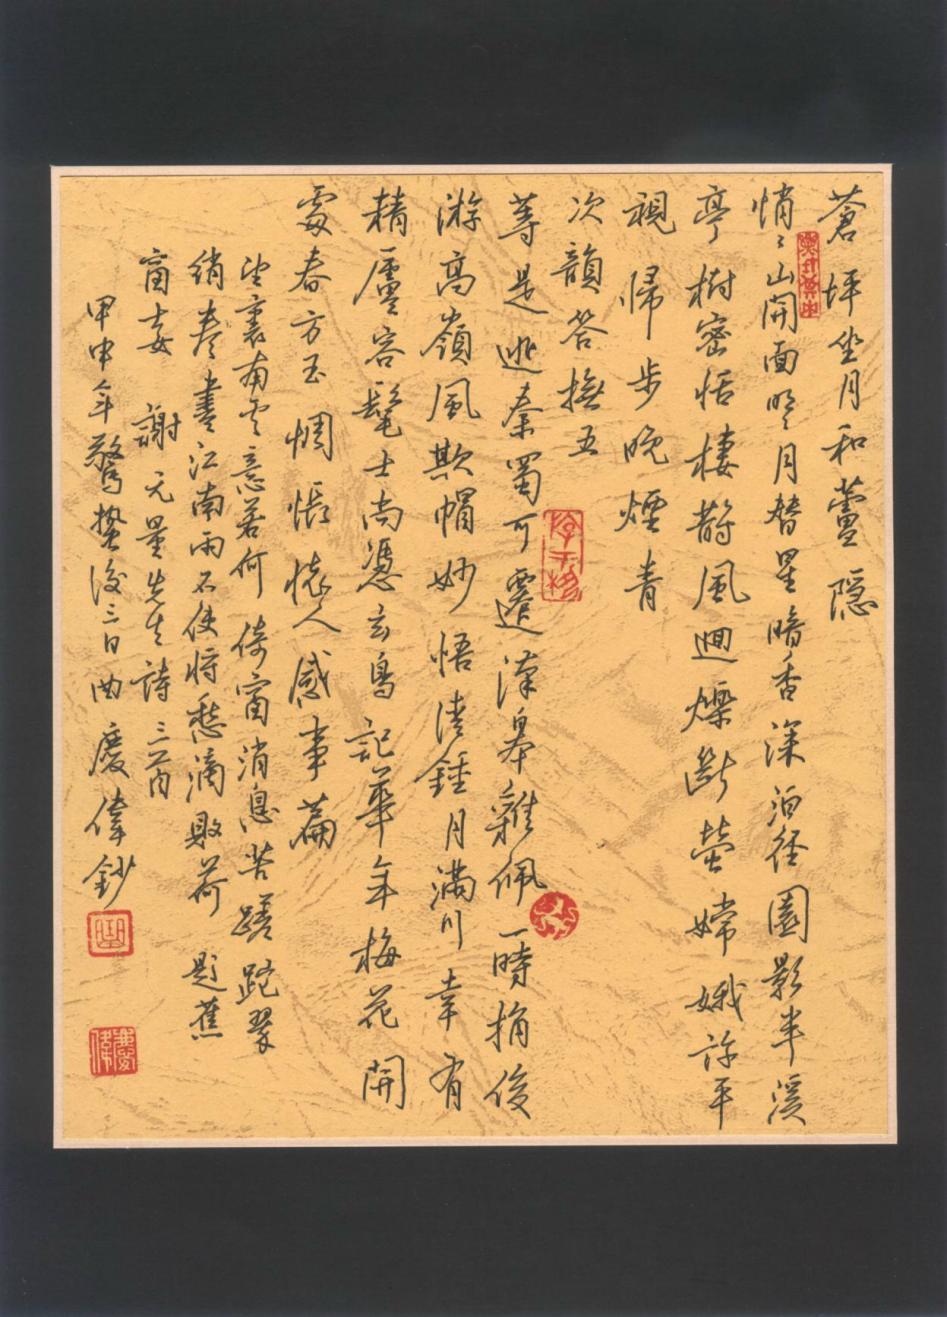 蒼坪坐月和蘆隱
悄〻山開面明月替星暗香深泊徑園影半溪
亭樹密恬棲鵲風迴爍斷螢嫦娥許平
視歸步晚煙青
次韻答撫五
等是逃秦蜀可遷漢皋雜佩一時捐俊
游高嶺風欺帽妙悟清鍾月滿川幸有
精廬容髦士尚憑玄鳥記華年梅花開
處春方至惆悵懷人感事篇
望裏南雲意若何倚窗消息苦蹉跎翠
綃卷盡江南雨不使將愁滴敗荷 題蕉
窗 謝元量先生詩三首
甲申年驚蟄後三日曲慶偉鈔